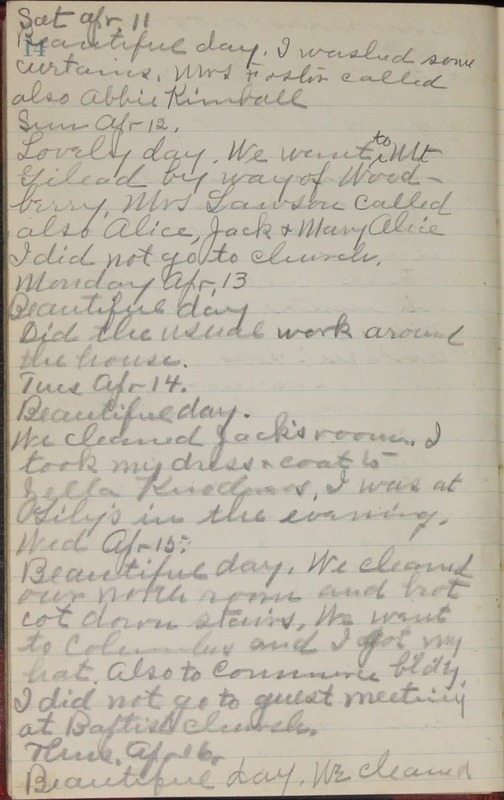 Sat Apr 11
14
Beautiful day. I washed some
curtains. Mrs Foster called
also Abbie Kimball
Sun Apr 12.
Lovely day. We went to Mt
Gilead by way of Wood-
berry, Mrs Lawson called
also Alice, Jack & Mary Alice
I did not go to church.
Monday Apr, 13
Beautiful day
Did the usual work around
the house.
Tues Apr 14.
Beautiful day.
We cleaned Jack's room. I
took my dress & coat to
Zella, I was at
in the evening.
Wed Apr 15.
Beautiful day. We cleaned
our north room and brot
cot down stairs, We went
to Columbus and I got my
hat. Also to Commerce bldg.
I did not go to guest meeting
at Baptist church.
Thurs. Apr 16.
Beautiful day. We cleaned